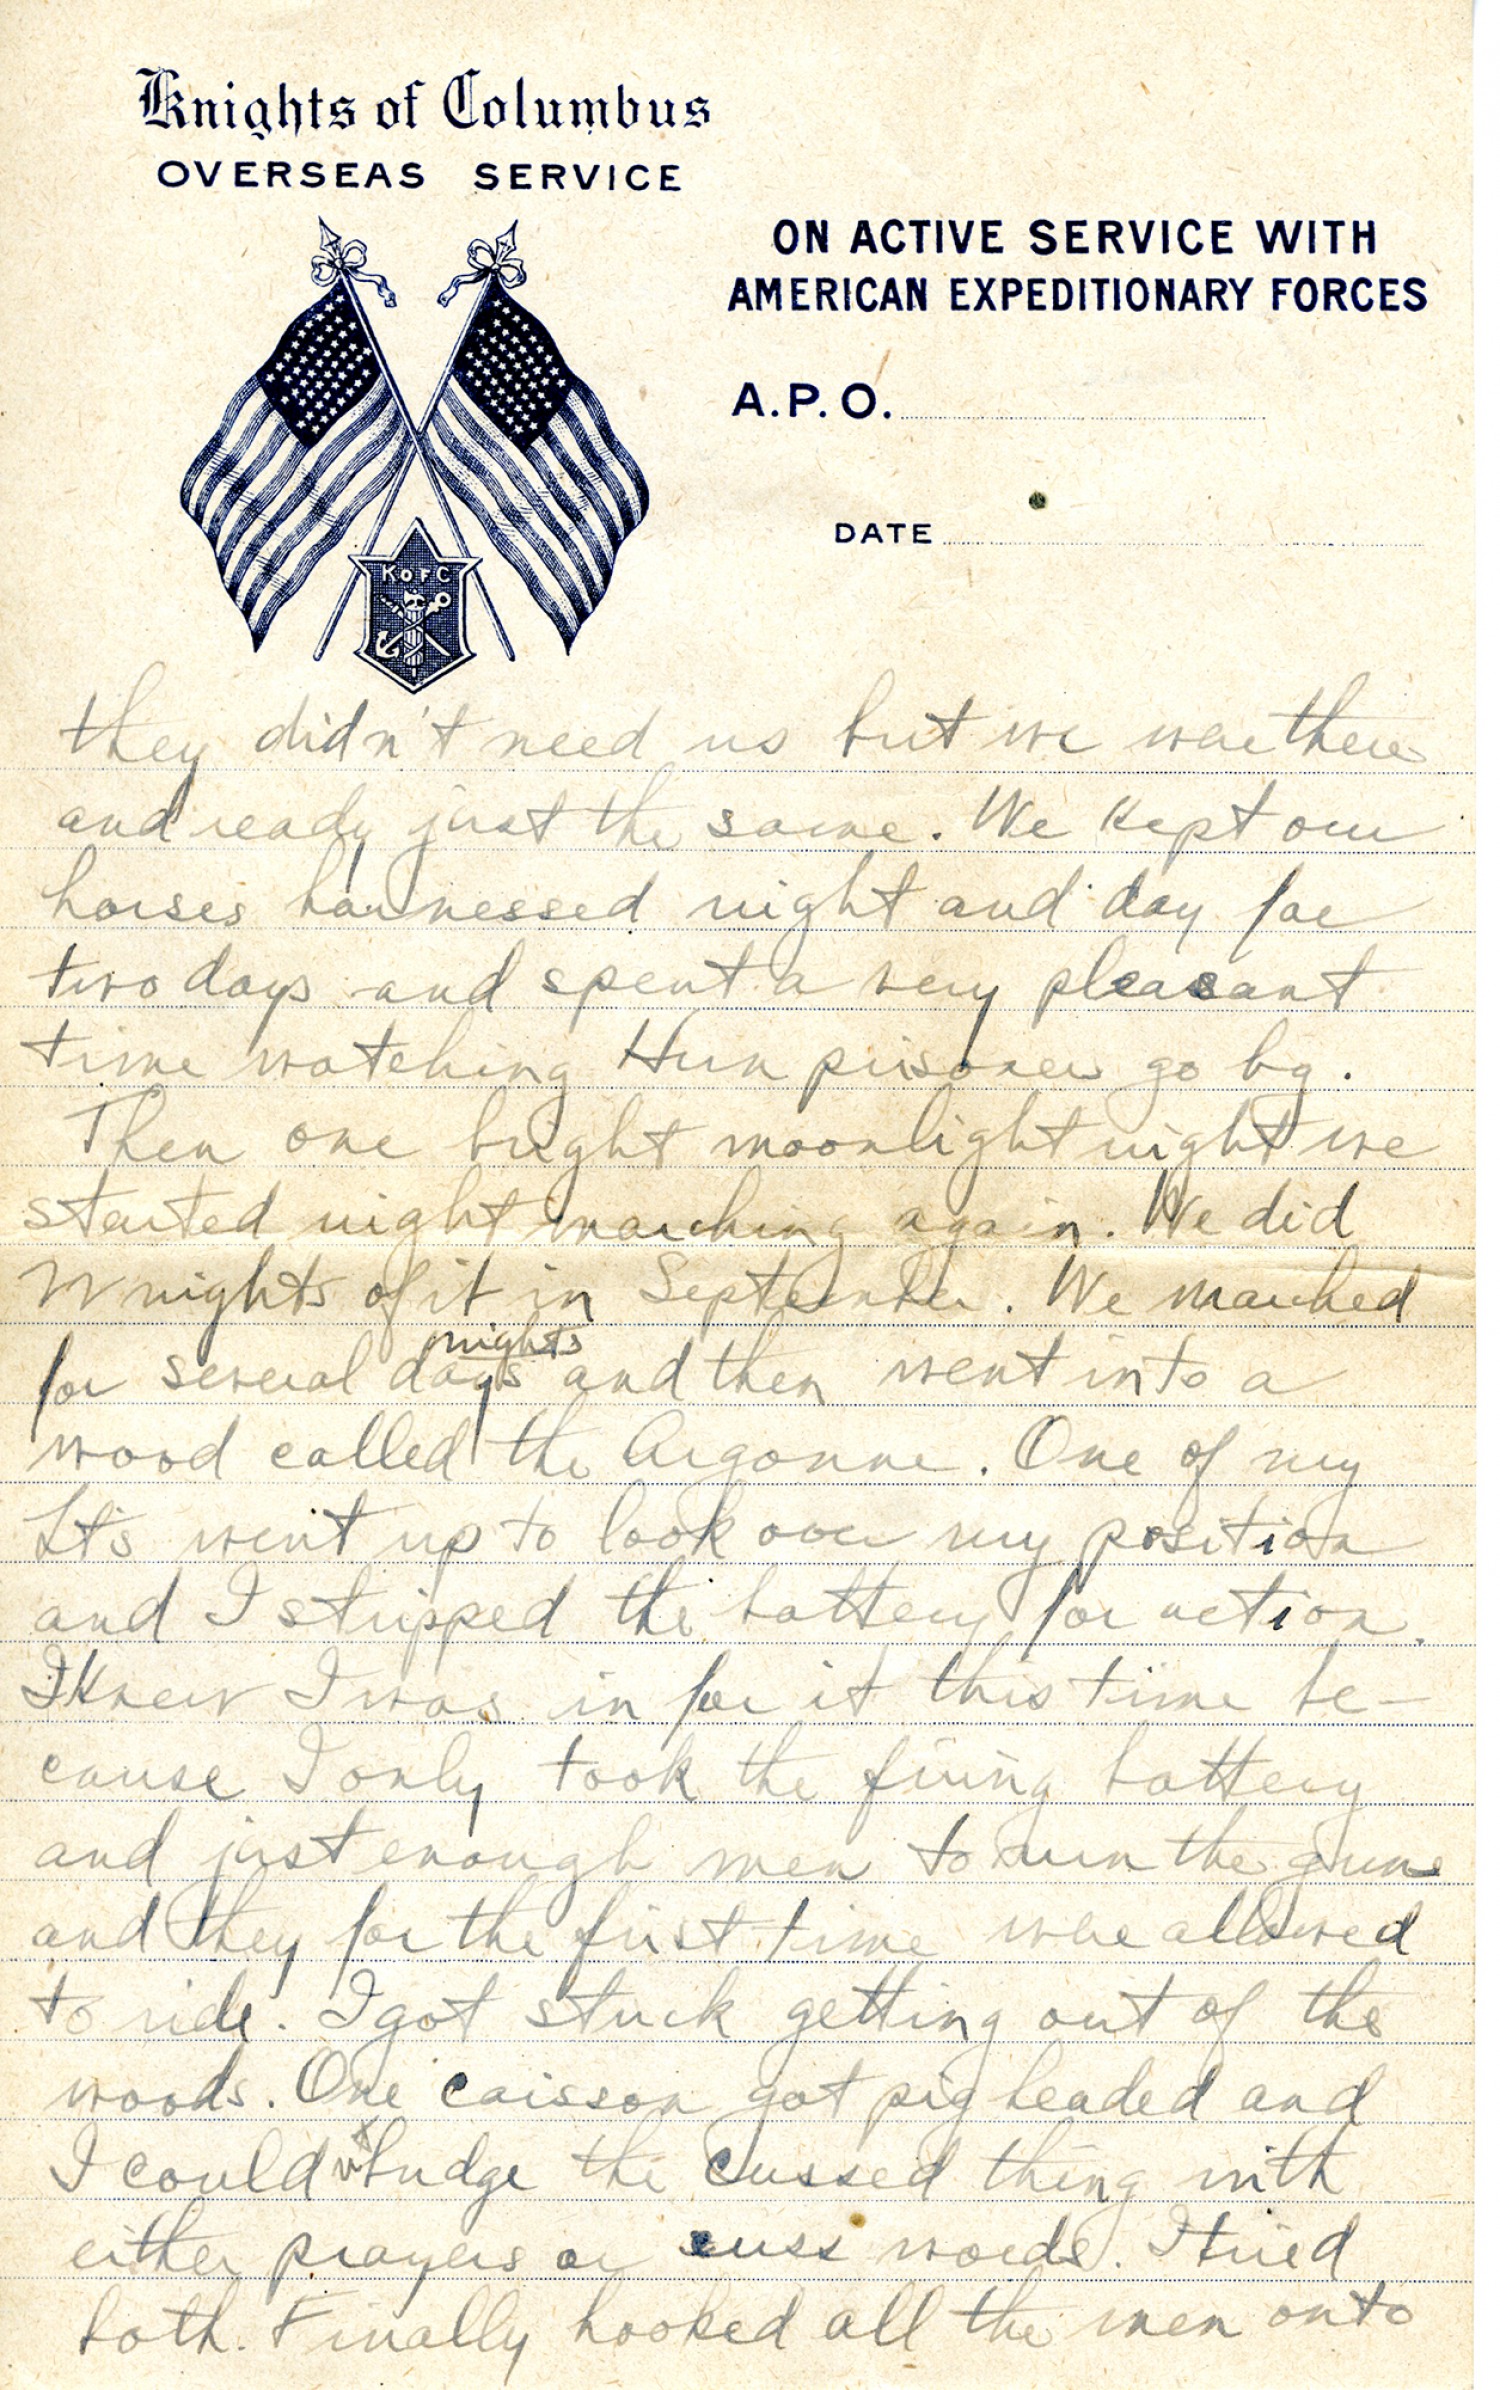 Knights of Columbus
OVERSEAS SERVICE
ON ACTIVE SERVICE WITH
AMERICAN EXPEDITIONARY FORCES
A.P.O.
DATE
K OF C
they didn't need us but we were there
and ready just the same. We kept our
horses harnessed night and day for
two days and spent a very pleasant
time watching Hun prisoners go by.
Then one bright moonlight night we
started night marching again. We did
nights of it in September. We marched
nights
for several days and then went into a
wood called the Argonne. One of my
Lt's went up to look over my position
and I stripped the battery for action.
I knew I was in for it this time be-
cause I only took the firing battery
and just enough men to run the guns
and they for the first time were allowed
to ride. I got stuck getting out of the
woods. One caisson got pig headed and
I couldn't budge the cussed thing with
either prayers or cuss words. I tried
both. Finally hooked all the men onto